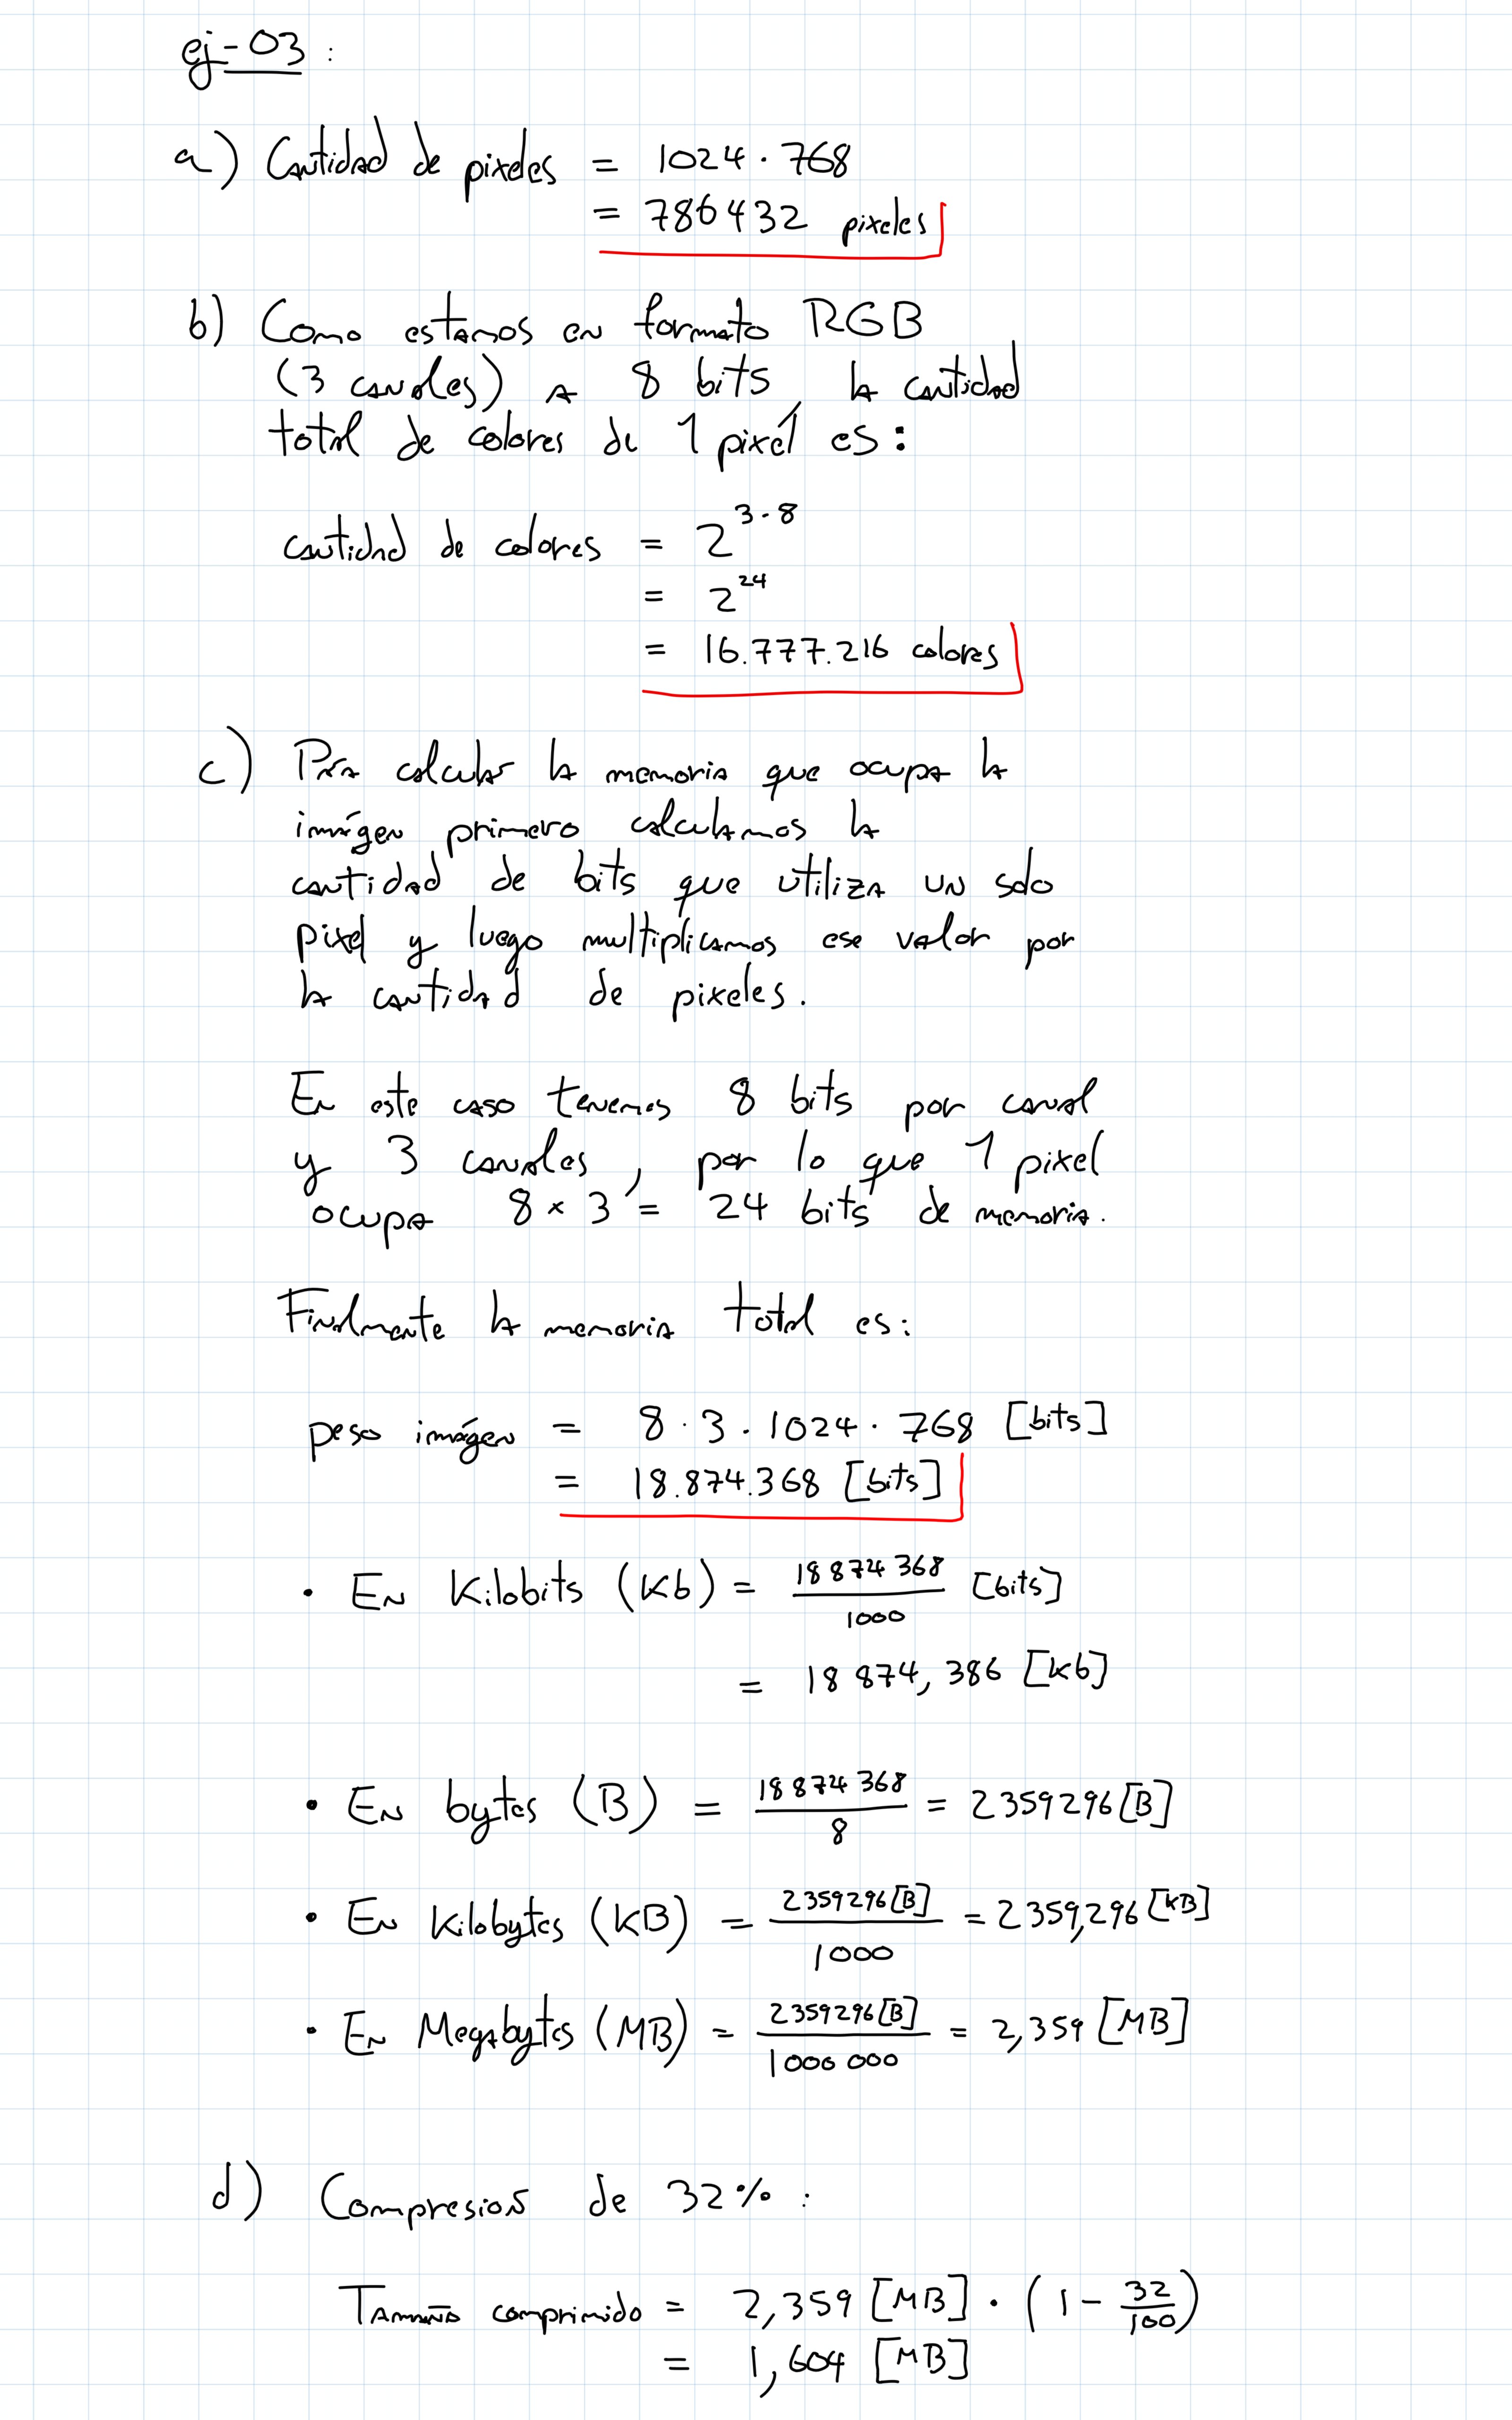 ej-03 :
a) Cantidad de pixeles = 1024 · 768
= 786432 pixeles
b) Como estamos en formato RGB
(3 canales) a 8 bits, la cantidad
total de colores de 1 pixel es:
cantidad de colores = 2^{3·8}
= 2^{24}
= 16.777.216 colores
c) Para calcular la memoria que ocupa la
imágen primero calculamos la
cantidad de bits que utiliza un solo
pixel y luego multiplicamos ese valor por
la cantidad de pixeles.
En este caso tenemos 8 bits por canal
y 3 canales, por lo que 1 pixel
ocupa 8 × 3 = 24 bits de memoria.
Finalmente la memoria total es:
peso imágen = 8 · 3 · 1024 · 768 [bits]
= 18.874.368 [bits]
• En Kilobits (Kb) = 18 874 368 / 1000 [bits]
= 18 874, 386 [Kb]
• En bytes (B) = 18 874 368 / 8 = 2359296 [B]
• En Kilobytes (KB) = 2359296 [B] / 1000 = 2359,296 [KB]
• En Megabytes (MB) = 2359296 [B] / 1000 000 = 2,359 [MB]
d) Compresion de 32% :
Tamaño comprimido = 2,359 [MB] · (1 - 32/100)
= 1,604 [MB]